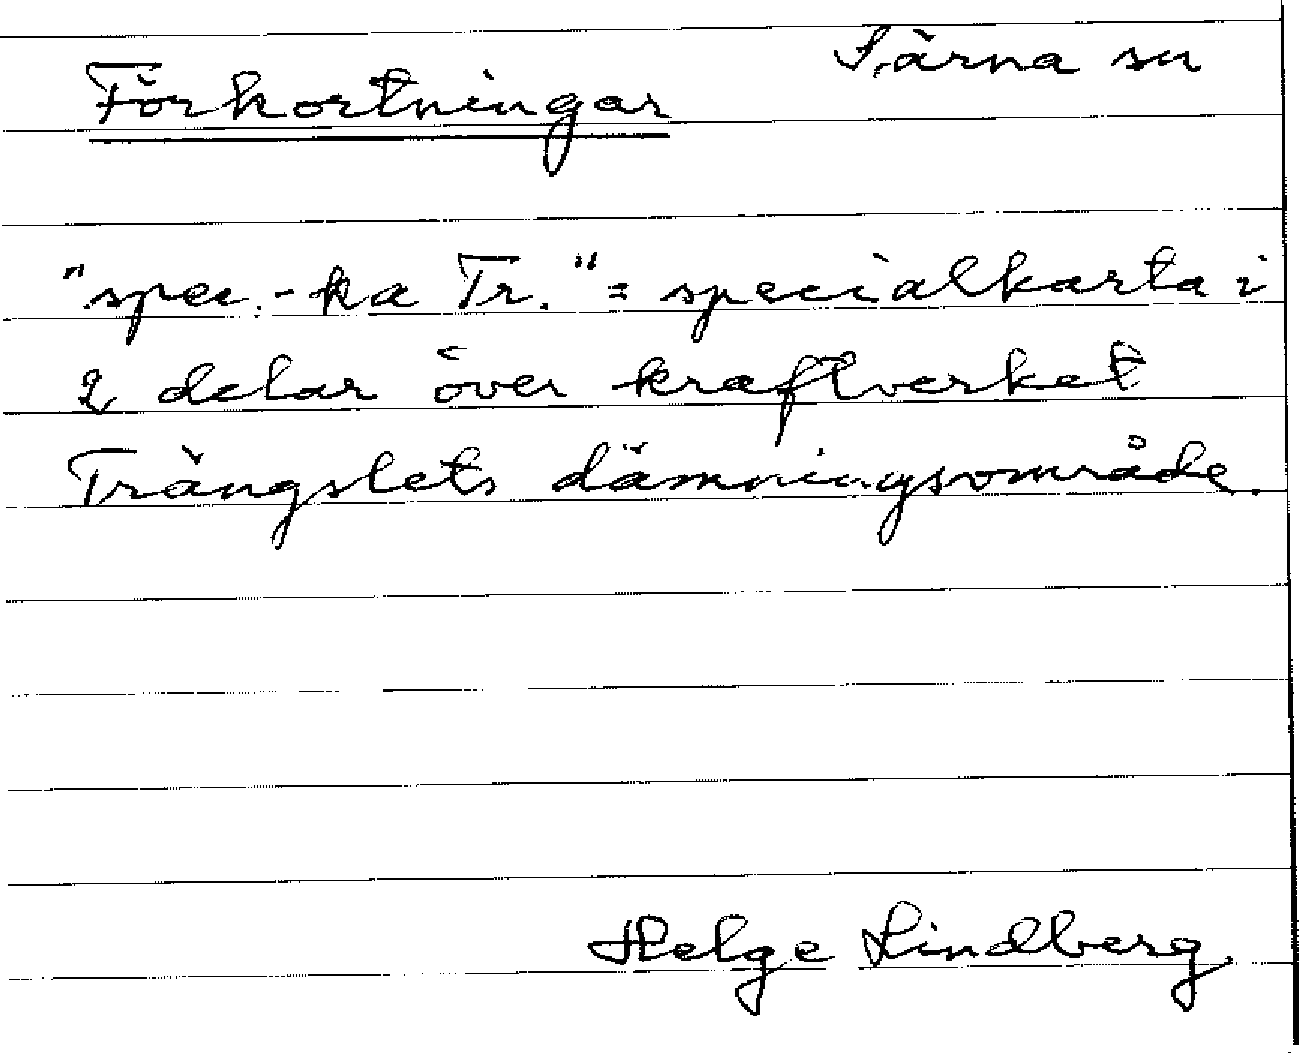 Särna sn
Förkortningar
"spec.-ka Tr." = specialkarta i
2 delar över kraftverket
Trängslets dämningsområde.
Helge Lindberg